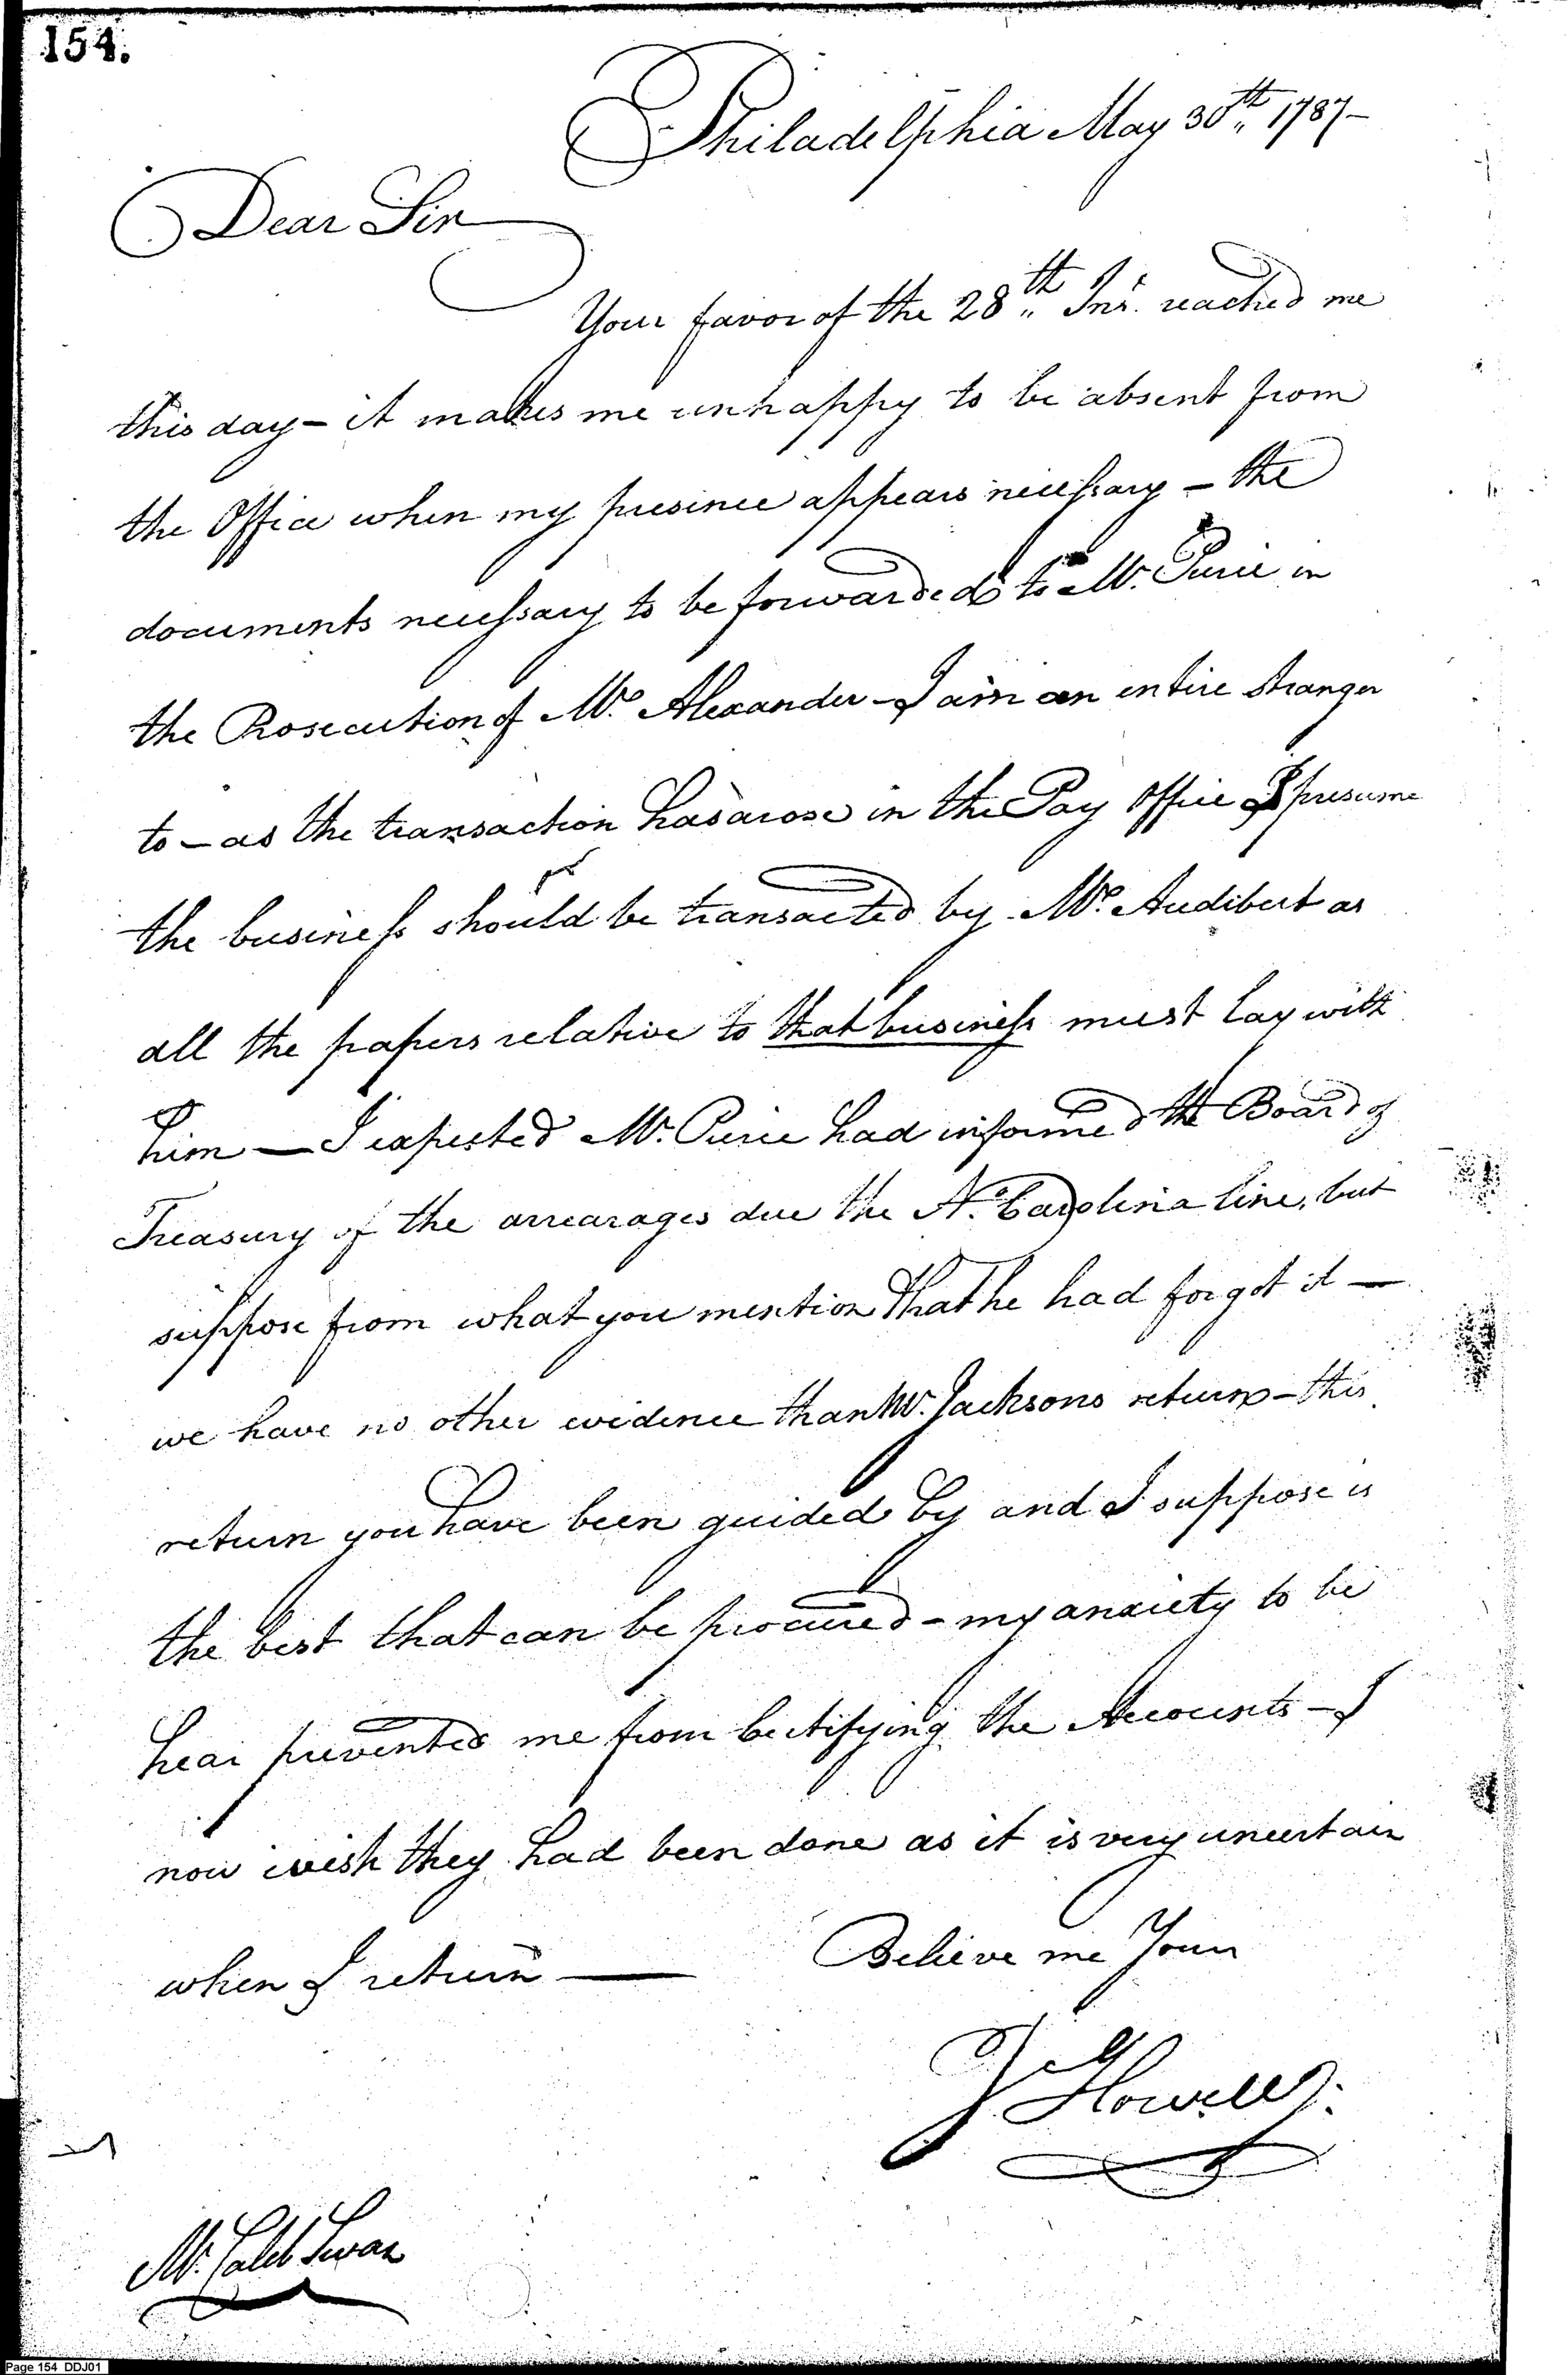 154.
Philadelphia May 30th 1787-
Dear Sir
Your favor of the 28th Inst. reached me
this day - it makes me unhappy to be absent from
the Office when my presence appears necessary - the
documents necessary to be forwarded to Mr. Pierce in
the Prosecution of Mr. Alexander - I am an entire stranger
to - as the transaction has arose in the Pay Office I presume
the business should be transacted by Mr. Audibert as
all the papers relative to that business must lay with
him — I expected Mr. Pierce had informed the Board of
Treasury of the arrearages due the No. Carolina line, but
suppose from what you mention that he had forgot it —
we have no other evidence than Mr. Jacksons return - this
return you have been guided by and I suppose is
the best that can be procured - my anxiety to be
hear prevented me from certifying the Accounts - I
now wish they had been done as it is very uncertain
when I return —
Believe me Your
J Howell Jr.
Mr. Caleb Swan
Page 154 DDJ01